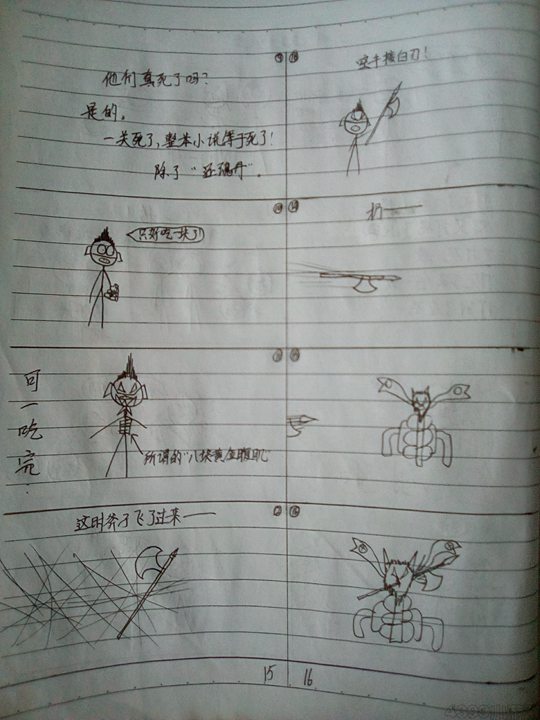 他们真死了吗?
是的。
一关死了,整本小说等于死了!
除了"还魂丹"。
只好吃一块了!
可一吃完:
所谓的"八块黄金腹肌"
这时斧子飞了过来——
15
空手接白刃!
扔——
16